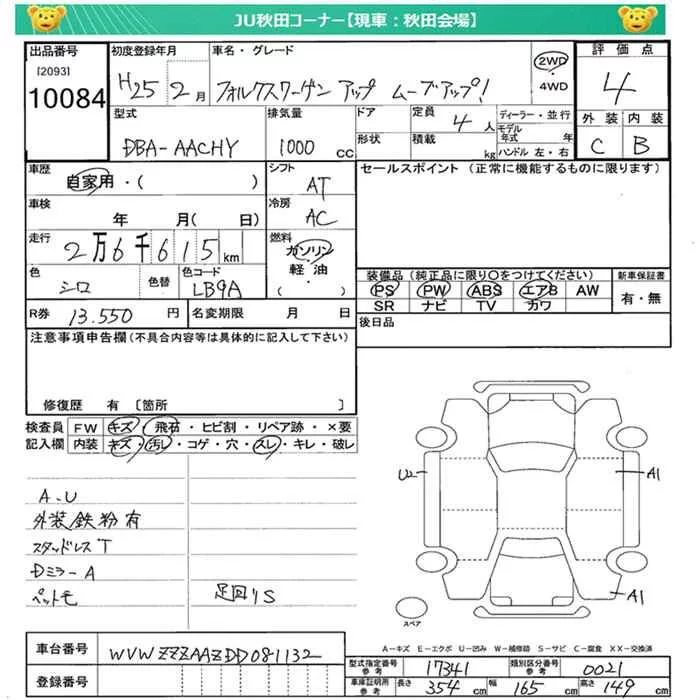 JU秋田コーナー【現車:秋田会場】
出品番号 初度登録年月 車名・グレード 2WD 評価点
[2093] 10084 H25 2月 フォルクスワーゲン アップ ムーブアップ! ・4WD 4
型式 排気量 ドア 定員 ディーラー・並行 外装 内装
DBA-AACHY 1000cc 4人 モデル年式 年 C B
形状 積載 kg ハンドル 左・右
車歴 シフト セールスポイント (正常に機能するものに限ります)
自家用・( ) AT
車検 冷房
年 月( 日) AC
走行 燃料
2万6千615km ガソリン
軽油・( )
色 色替 色コード 装備品(純正品に限り〇をつけてください) 新車保証書
シロ LB9A PS PW ABS エアB AW 有・無
SR ナビ TV カワ
R券 13.550円 名変期限 月 日 後日品
注意事項申告欄(不具合内容等は具体的に記入して下さい)
修復歴 有 [箇所 ]
検査員 FW キズ・飛石・ヒビ割・リペア跡・×要
記入欄 内装 キズ・汚レ・コゲ・穴・スレ・キレ・破レ
U2 A1
A-U
外装鉄粉有
スタッドレスT
Dミラ-A A1
ペットモ 足回りS
スペア
A-キズ E-エクボ U-凹み W-補修跡 S-サビ C-腐食 XX-交換済
車台番号 WVWZZZAAZDD081132
型式指定番号 参考 17341 類別区分番号 参考 0021
登録番号 車庫証明用 参考 長さ 354cm 幅 165cm 高さ 149cm